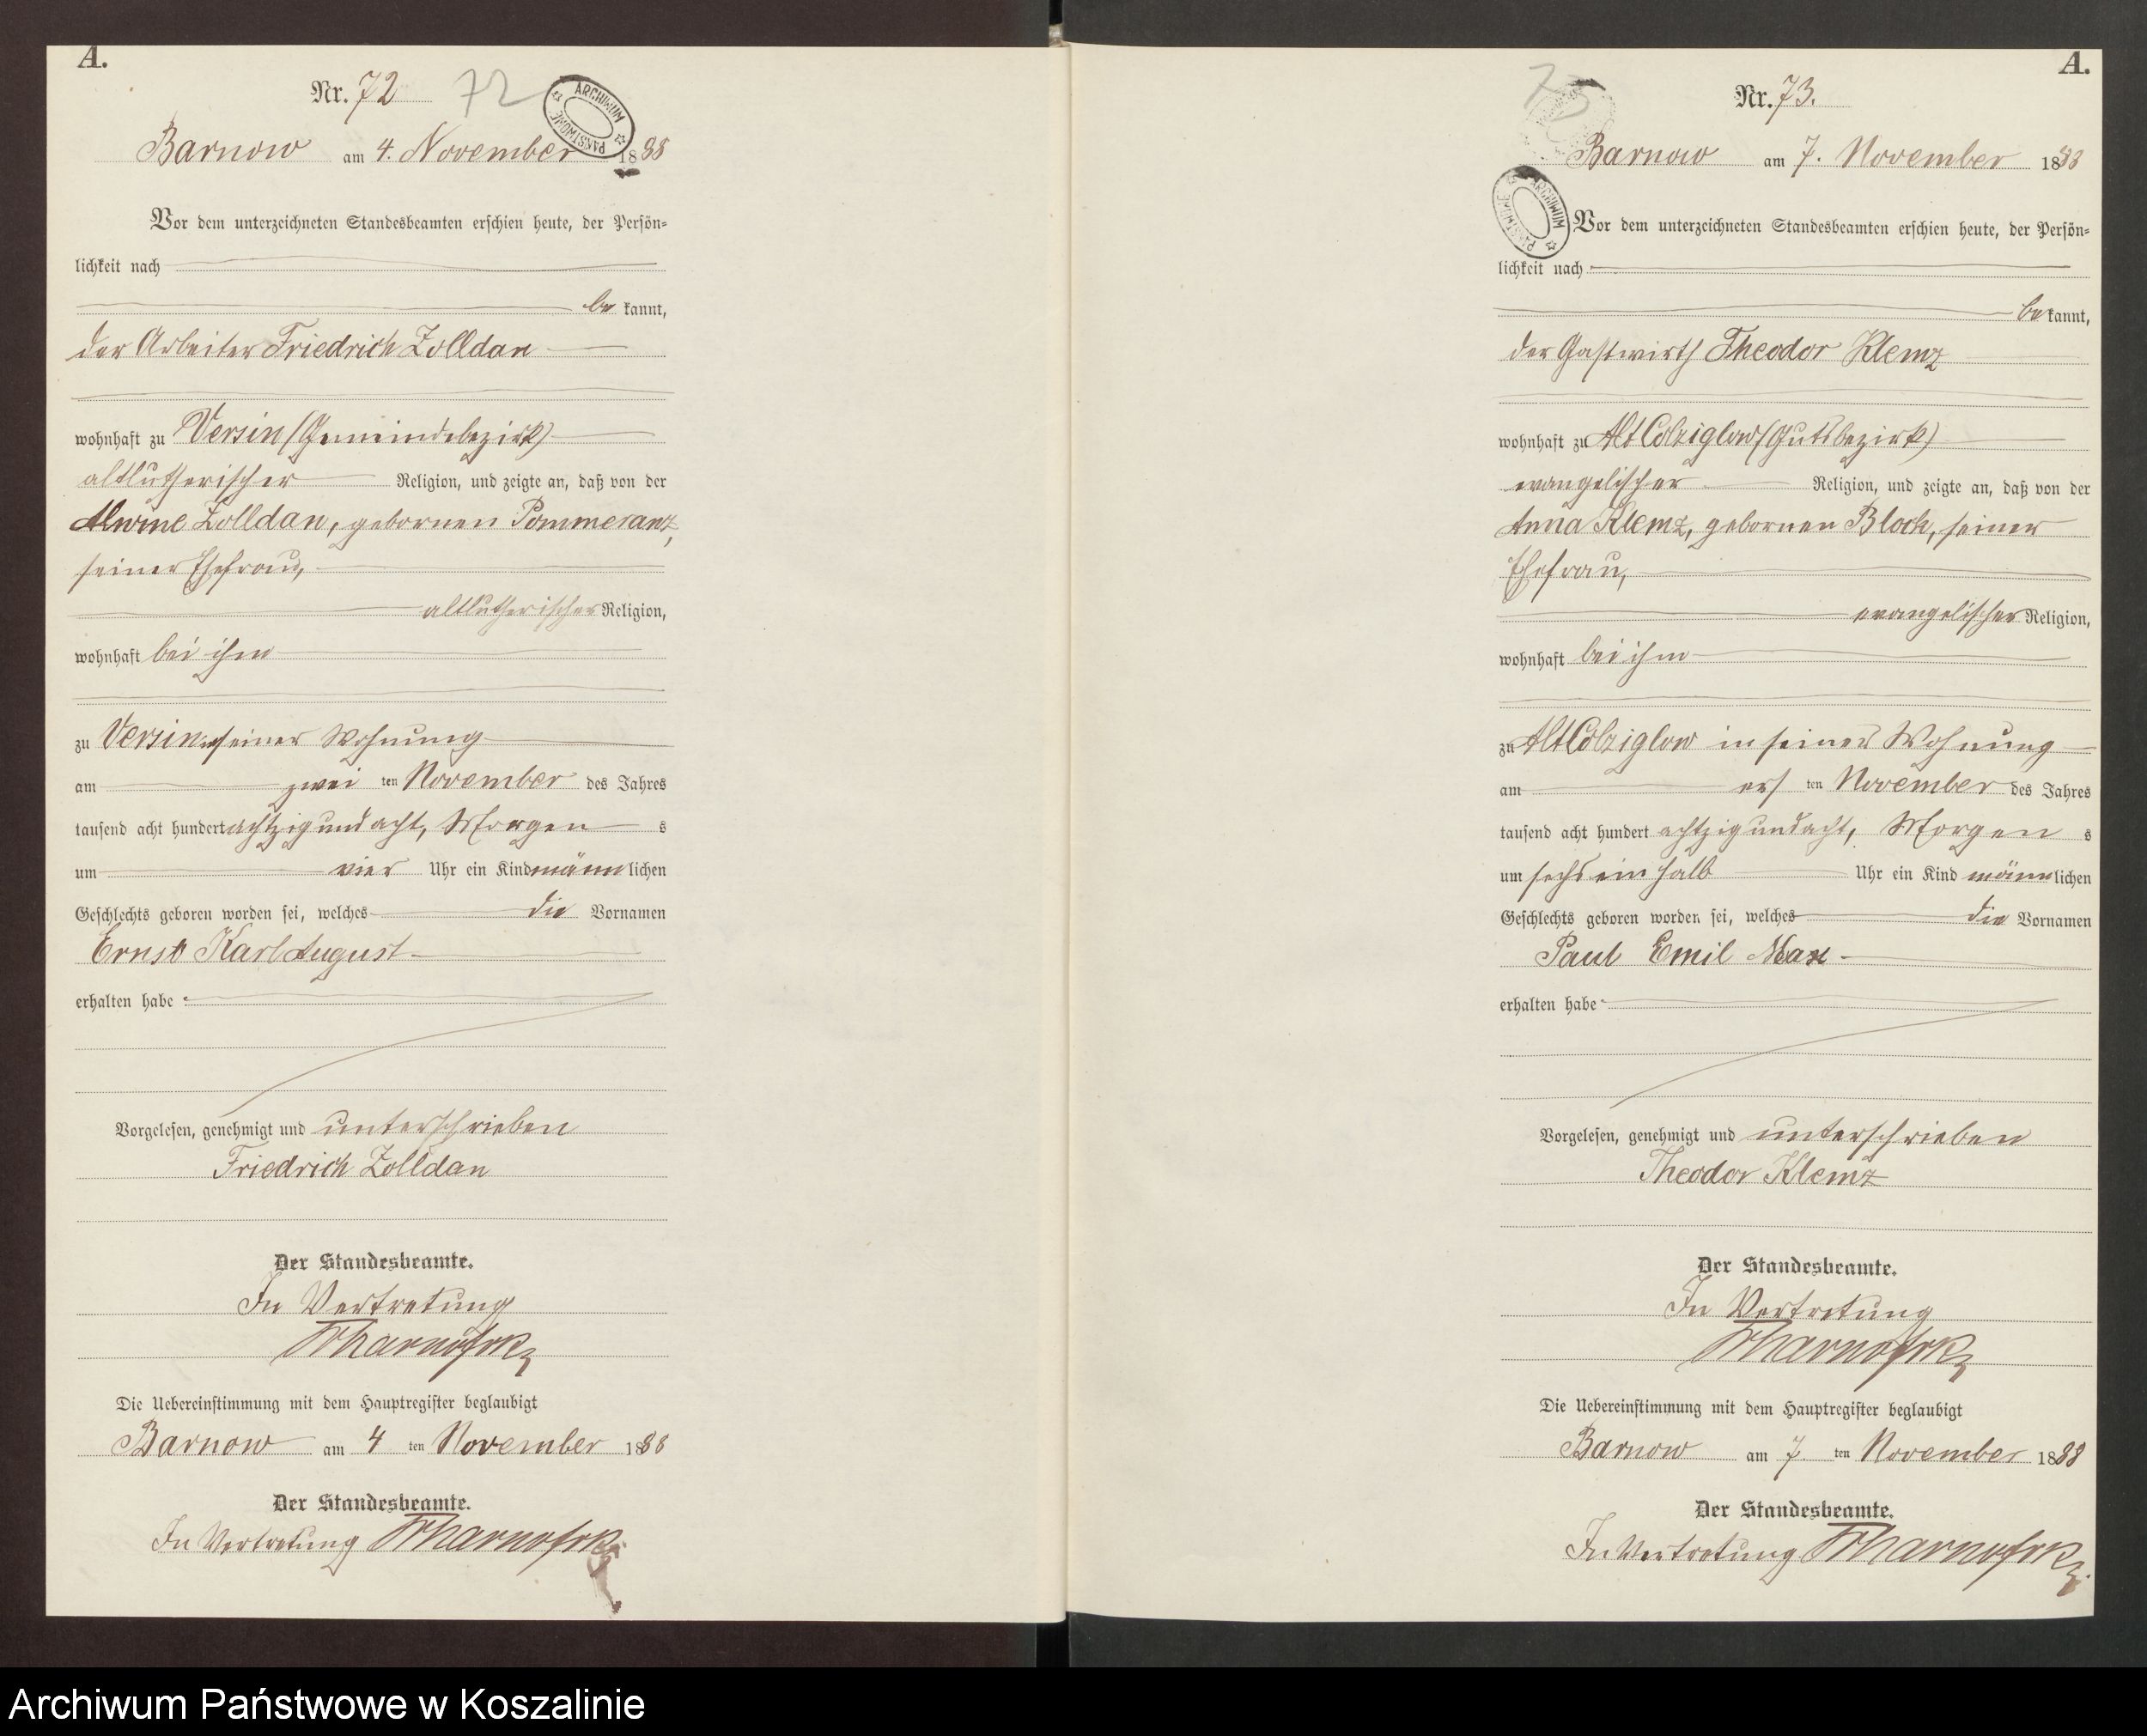 A.
Nr. 72 72
ARCHIWUM PAŃSTWOWE
Barnow am 4. November 1888
Vor dem unterzeichneten Standesbeamten erschien heute, der Persön=
lichkeit nach
be kannt,
der Arbeiter Friedrich Zolldan
wohnhaft zu Versin (Gemeindebezirk)
altlutherischer Religion, und zeigte an, daß von der
Alwine Zolldan, gebornen Pommeranz,
seiner Ehefrau,
altlutherischer Religion,
wohnhaft bei ihm
zu Versin in seiner Wohnung
am zwei ten November des Jahres
tausend acht hundert achtzig und acht, Morgen s
um vier Uhr ein Kind männlichen
Geschlechts geboren worden sei, welches die Vornamen
Ernst Karl August
erhalten habe
Vorgelesen, genehmigt und unterschrieben
Friedrich Zolldan
Der Standesbeamte.
In Vertretung
Die Uebereinstimmung mit dem Hauptregister beglaubigt
Barnow am 4 ten November 1888
Der Standesbeamte.
In Vertretung
A.
73 Nr. 73.
Barnow am 7. November 1888
ARCHIWUM PAŃSTWOWE
Vor dem unterzeichneten Standesbeamten erschien heute, der Persön=
lichkeit nach
be kannt,
der Gastwirth Theodor Klemz
wohnhaft zu Alt Colziglow (Gutsbezirk)
evangelischer Religion, und zeigte an, daß von der
Anna Klemz, gebornen Block, seiner
Ehefrau,
evangelischer Religion,
wohnhaft bei ihm
zu Alt Colziglow in seiner Wohnung
am ers ten November des Jahres
tausend acht hundert achtzig und acht, Morgen s
um sechs ein halb Uhr ein Kind männlichen
Geschlechts geboren worden sei, welches die Vornamen
Paul Emil Max
erhalten habe
Vorgelesen, genehmigt und unterschrieben
Theodor Klemz
Der Standesbeamte.
In Vertretung
Die Uebereinstimmung mit dem Hauptregister beglaubigt
Barnow am 7. ten November 1888
Der Standesbeamte.
In Vertretung
Archiwum Państwowe w Koszalinie